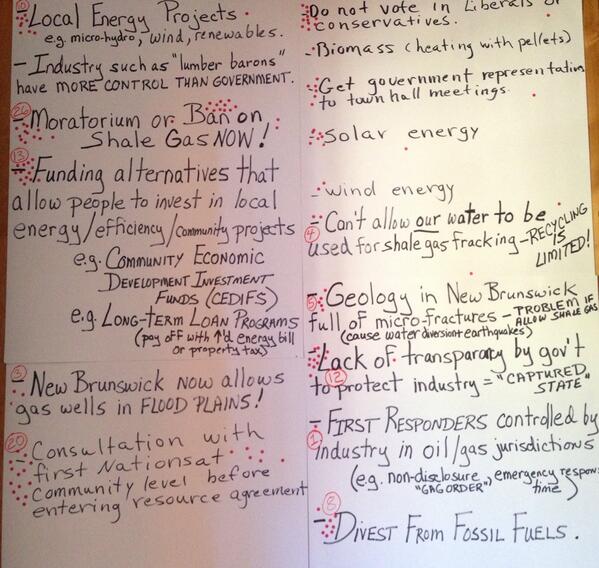 10
- Local Energy Projects
e.g. micro-hydro, wind, renewables.
- Industry such as "lumber barons"
have MORE CONTROL THAN GOVERNMENT.
26
- Moratorium or Ban on
Shale Gas NOW!
13
- Funding alternatives that
allow people to invest in local
energy/efficiency/community projects
e.g. Community Economic
Development Investment
Funds (CEDIFS)
e.g. Long-Term Loan Programs
(pay off with ↑'d energy bill
or property tax)
3
- New Brunswick now allows
gas wells in FLOOD PLAINS!
20
- Consultation with
first Nations at
community level before
entering resource agreement
Do not vote in Liberals or
conservatives.
- Biomass (heating with pellets)
- Get government representation
to town hall meetings.
- Solar energy
- wind energy
- Can't allow our water to be
4
used for shale gas fracking - RECYCLING
IS
LIMITED!
5
- Geology in New Brunswick
full of micro-fractures - PROBLEM IF
ALLOW SHALE GAS
(cause water diversion + earthquakes)
- Lack of transparany by gov't
12
to protect industry = "CAPTURED
STATE"
- FIRST RESPONDERS controlled by
1
industry in oil/gas jurisdictions
(e.g. non-disclosure, emergency respons
"GAG ORDER" time)
8
- DIVEST FROM FOSSIL FUELS.